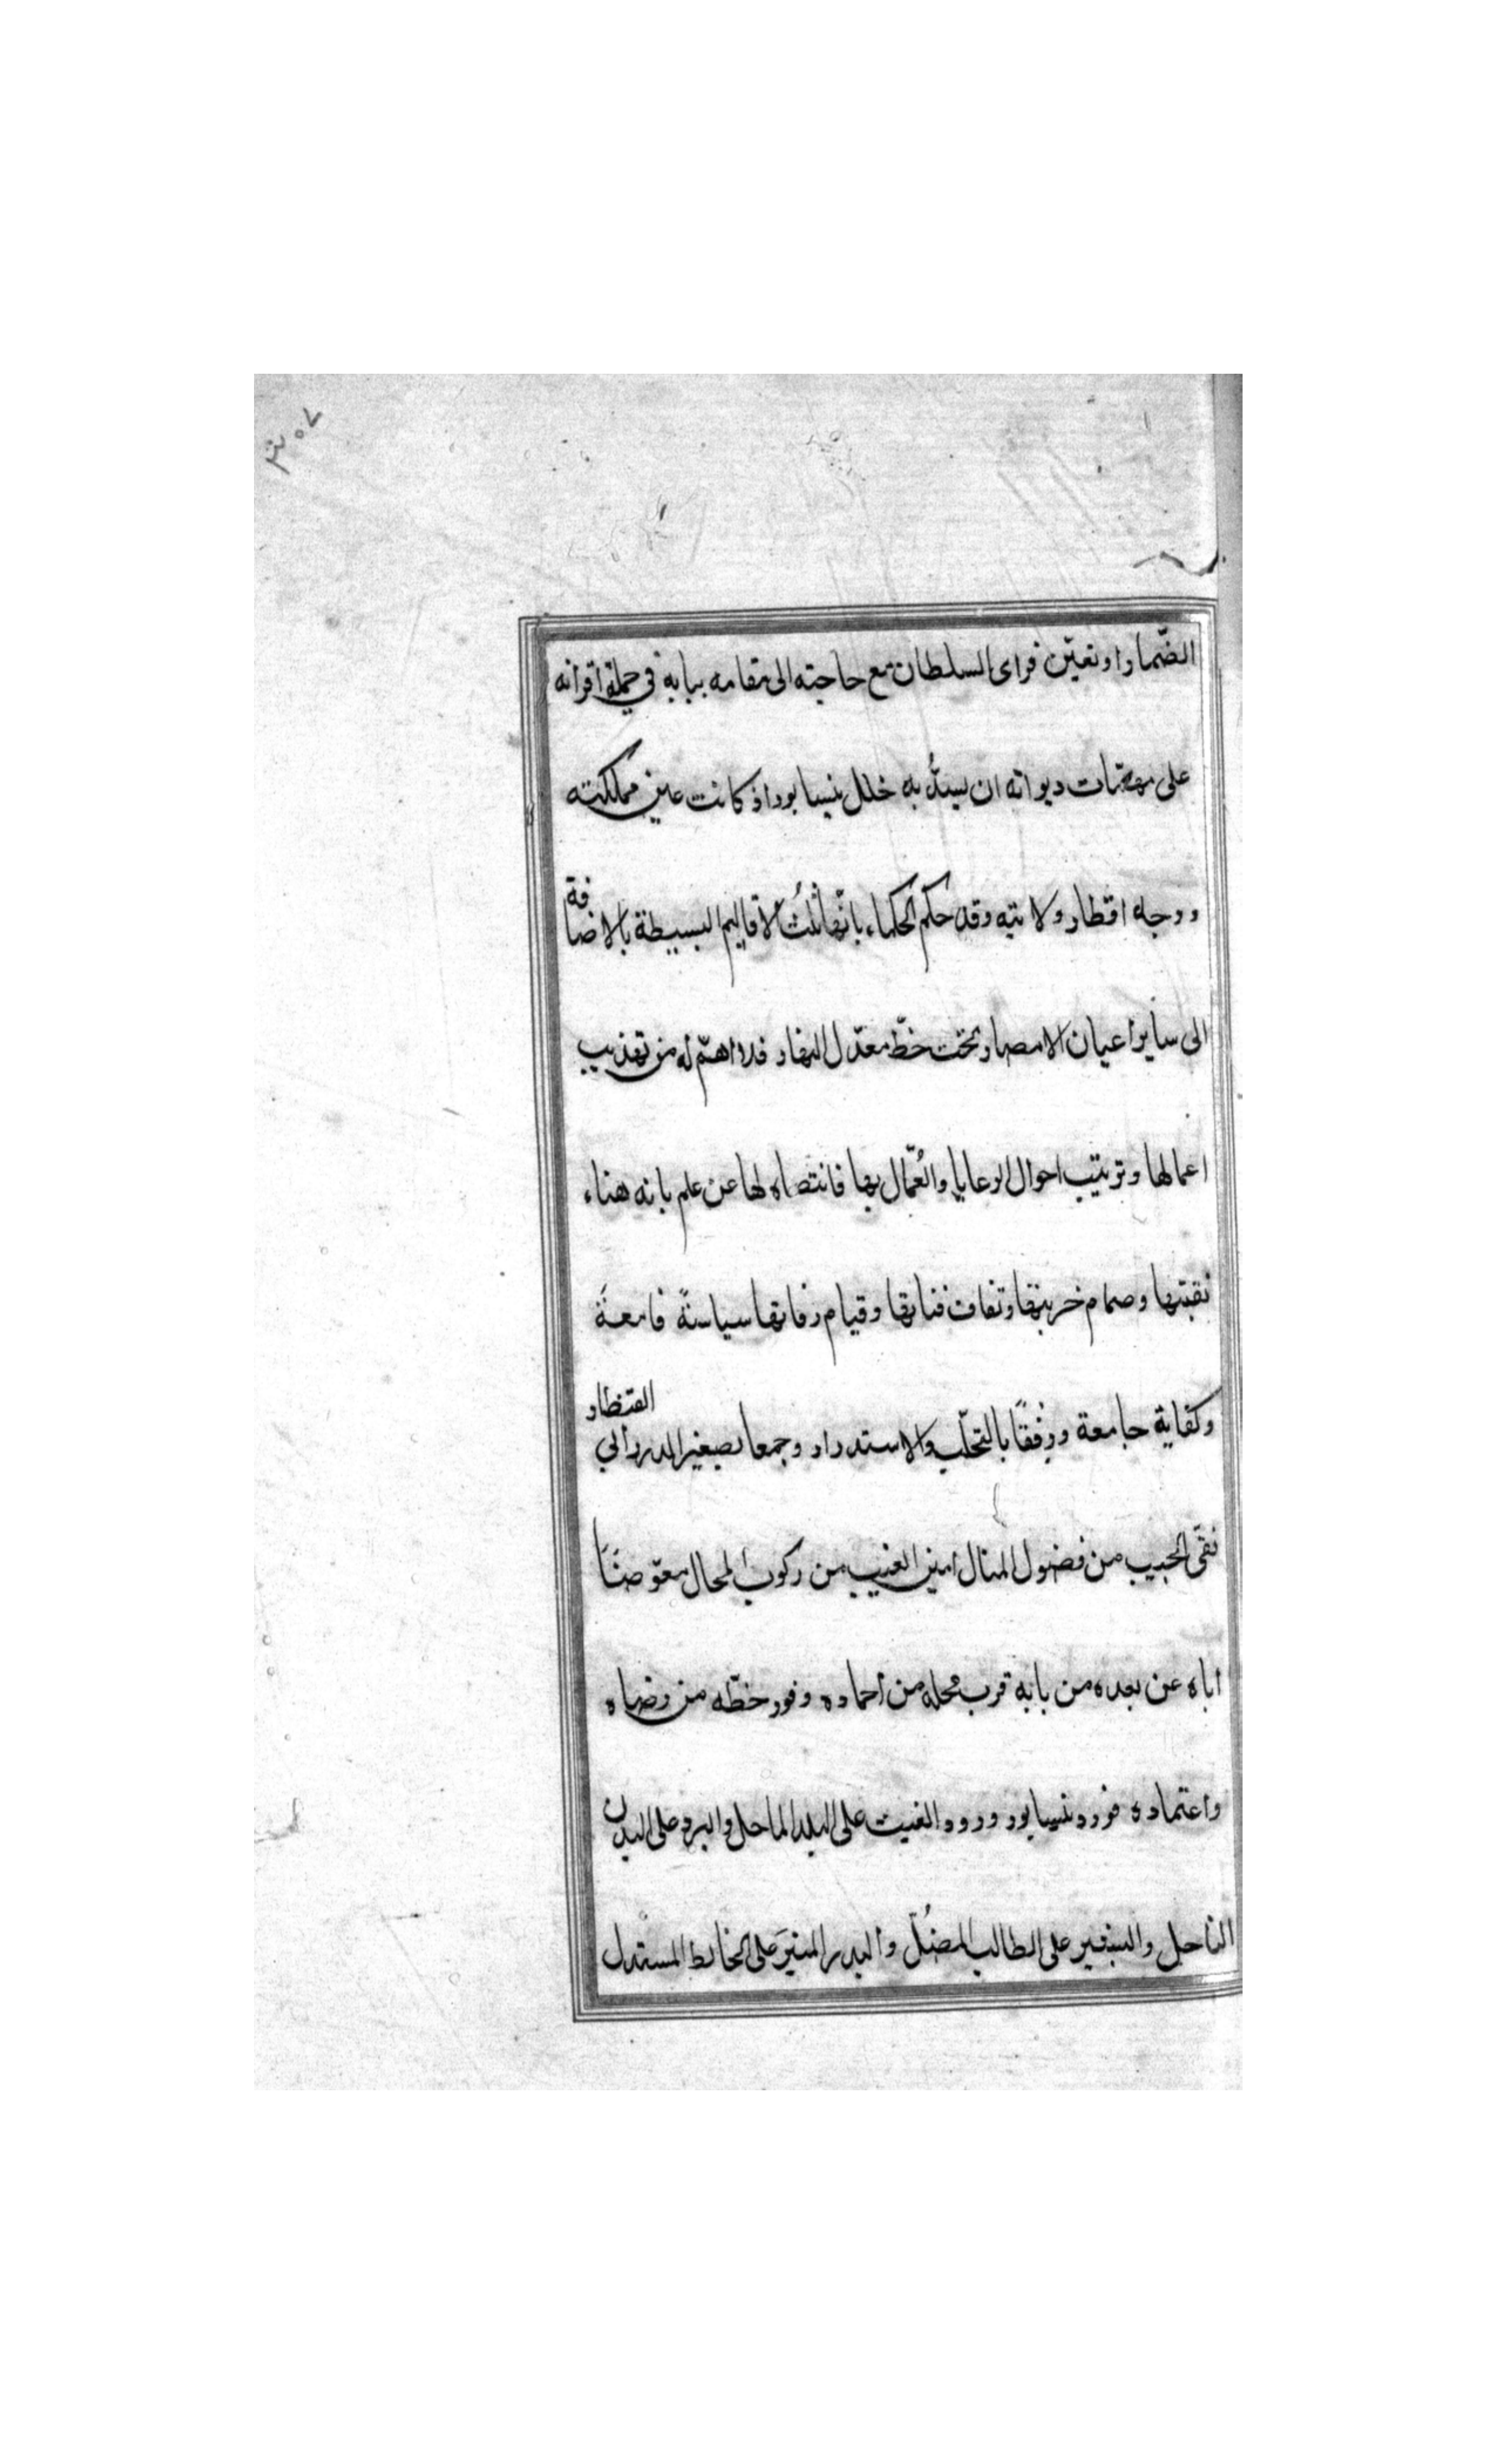 ٣٠٧
الضّمار او تعيّن فراى السلطان مع حاجته الى مقامه ببابه في جملة اقرانه
على مهمّات ديوانه ان يسدُّ به خلل نيسابور اذ كانت عين مملكته
ووجه اقطار ولايته وقد حكم الحكماء بانّها ثلثُ الاقاليم البسيطة بالاضافة
الى ساير اعيان الامصار تحت خطّ معدّل النهار فلا اهمّ له من تهذيب
اعمالها وترتيب احوال الرعايا والعُمّال بها فانتصاه لها عن علم بانه هناء
نقبتها وصمام خربتها وثقاف قناتها وقيام رفاتها سياسةً قامعةً
وكفاية جامعة ورِفقًا بالتحلّب والاستدرار وجمعا لصغير المدر الى القنطار
نقّى الجيب من فضول المنال امين الغيب من ركوب المحال معوّضًا
اياه عن بعده من بابه قرب محله من احماده وفور حظّه من رضاه
واعتماده فورد نيسابور ورود الغيث على البلد الماحل والبرء على البدن
الناحل والبشير على الطالب المضُلّ والبدر المنير على الخابط المستدل